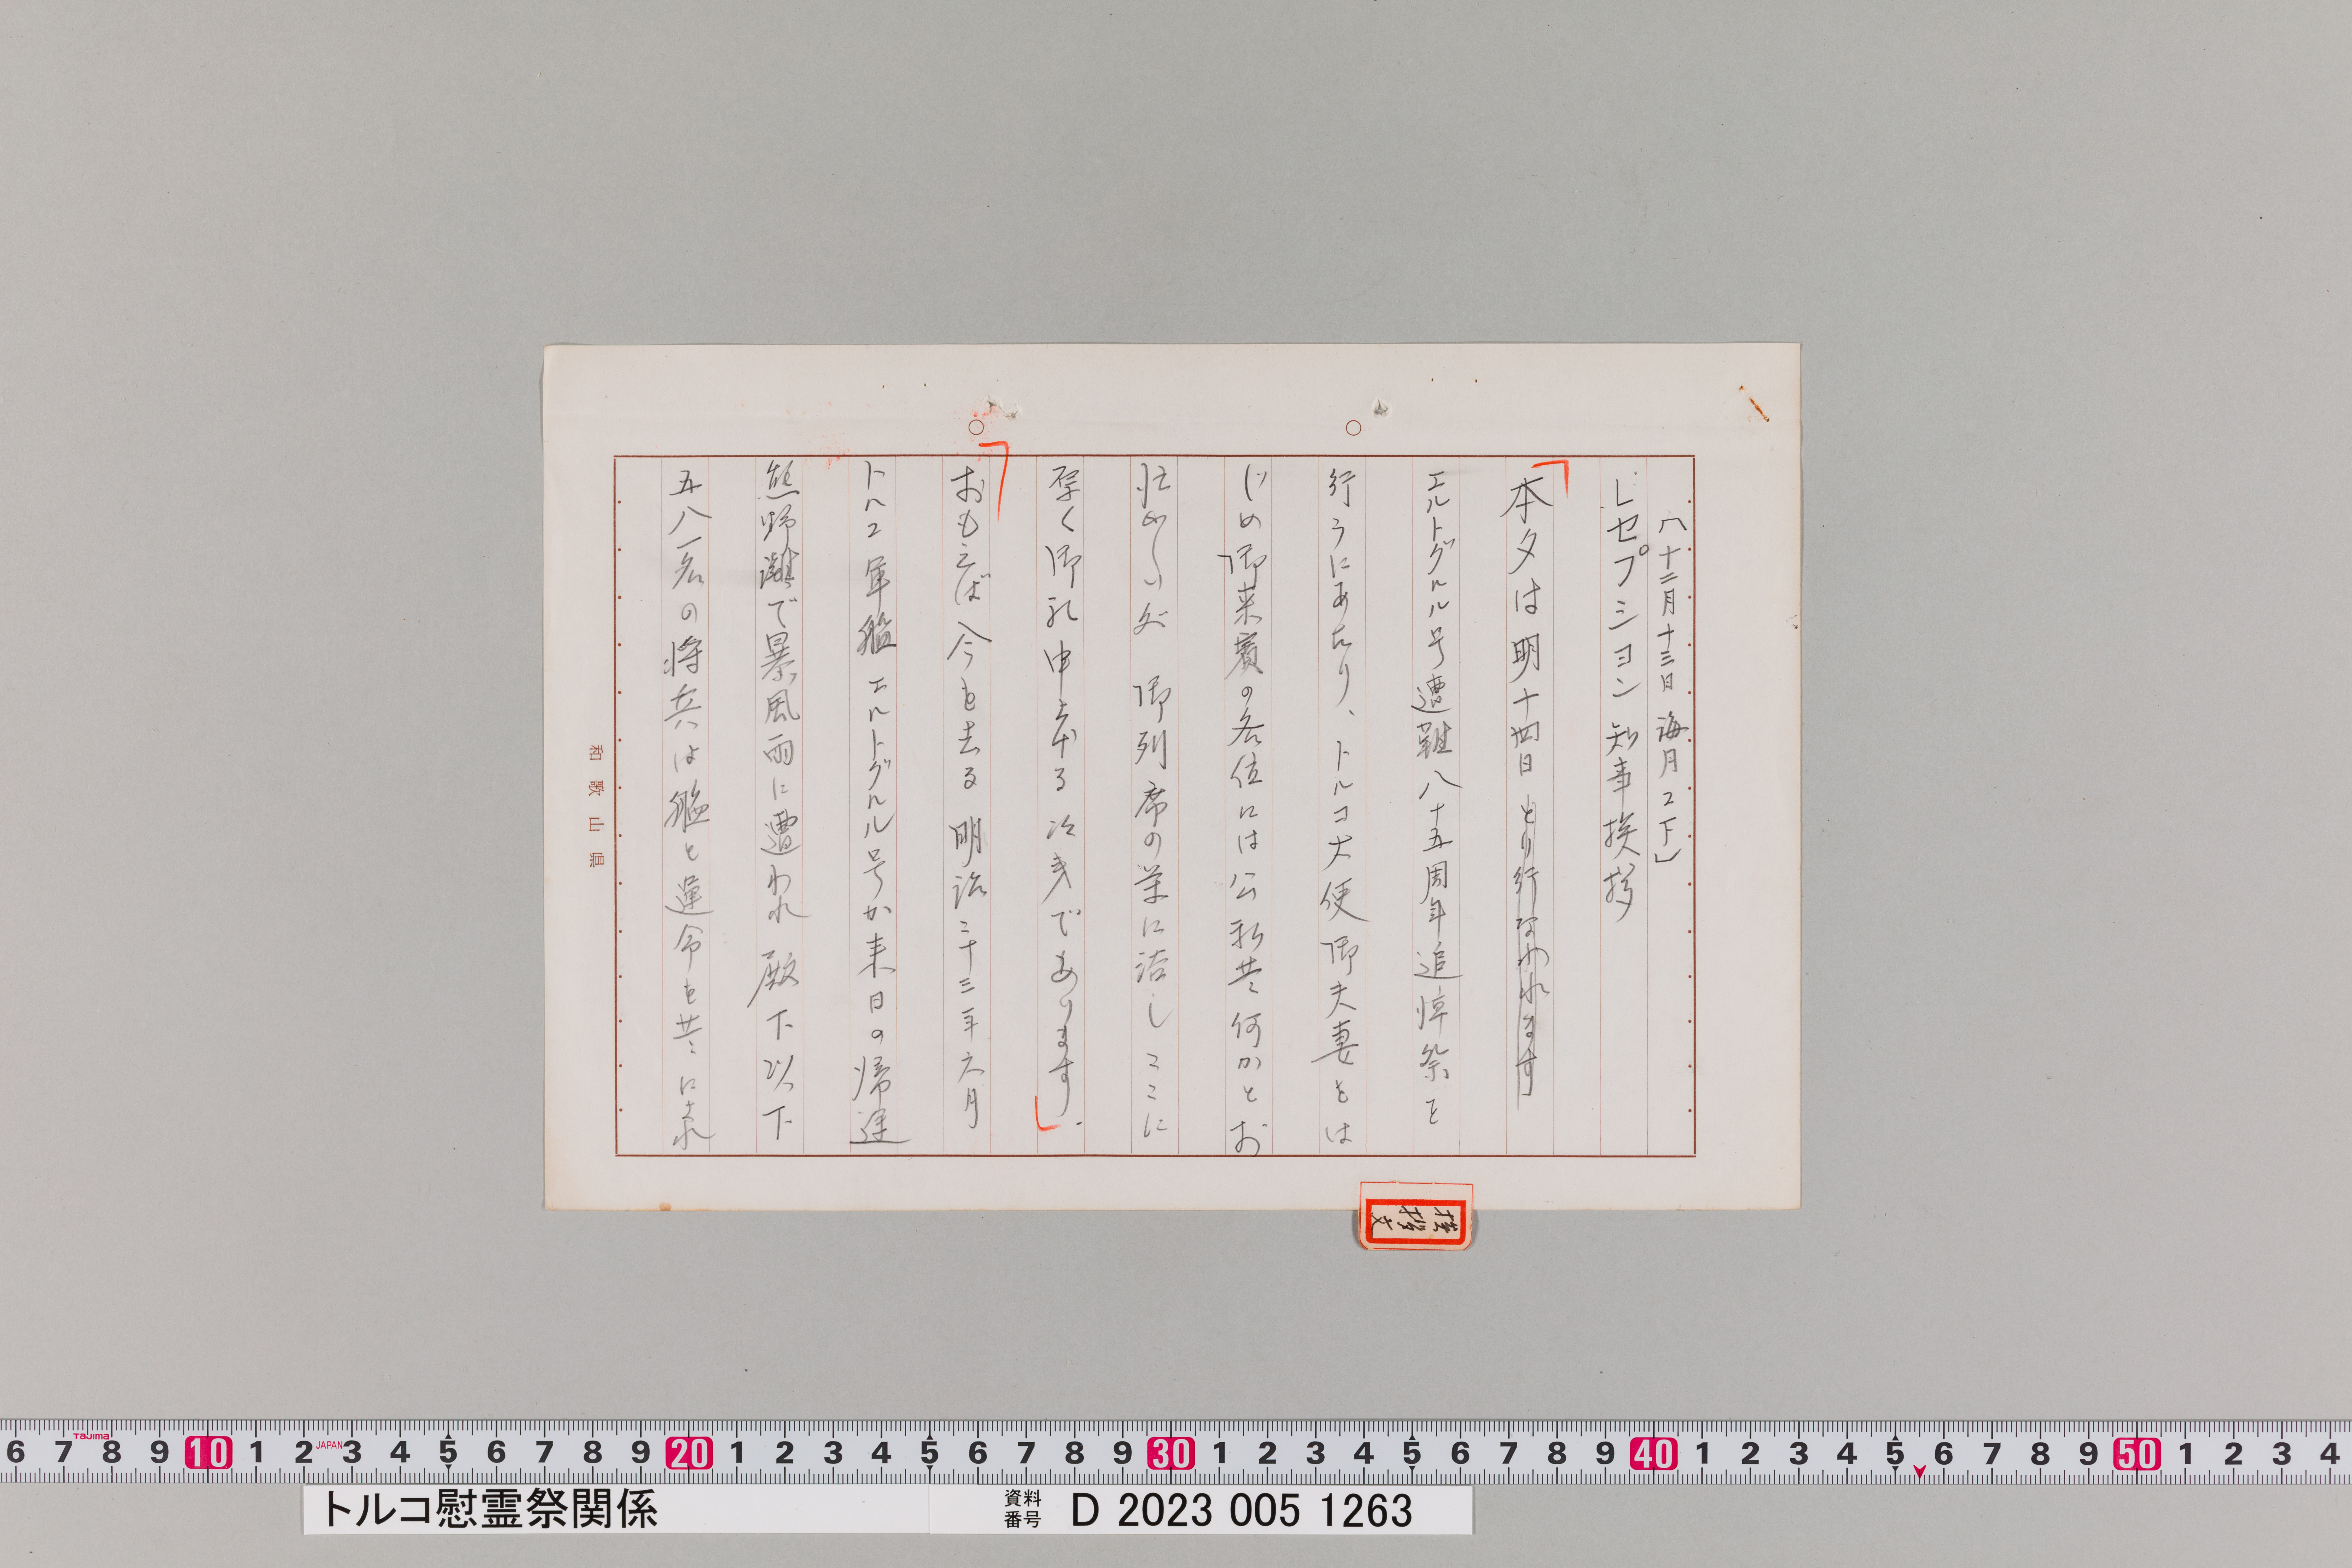 (十二月十三日 海月ニ下」
レセプション知事挨拶
本夕は明十四日とり行なわれます
エルトグルル号遭難八十五周年追悼祭を
行うにあたり、トルコ大使御夫妻をは
じめ御来賓の各位には公私共何かとお
忙しい処 御列席の栄に浴しここに
厚く御礼申し上げる次第であります.
おもえば今を去る明治二十三年六月
トルコ軍艦エルトグルル号が来日の帰途
熊野灘で暴風雨に遭われ殿下以下
五八一名の将兵は艦と運命を共にされ
和歌山県
挨拶文
トルコ慰霊祭関係
資料番号 D 2023 005 1263
Tajima
JAPAN
6 7 8 9 10 1 2 3 4 5 6 7 8 9 20 1 2 3 4 5 6 7 8 9 30 1 2 3 4 5 6 7 8 9 40 1 2 3 4 5 6 7 8 9 50 1 2 3 4